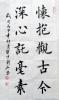 懷抱觀古今
深心託毫素